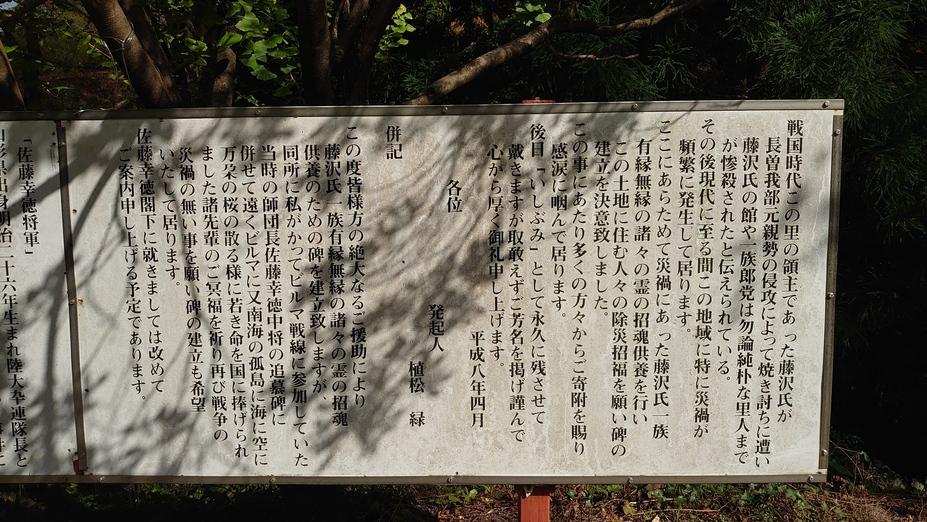 戦国時代この里の領主であった藤沢氏が
長曽我部元親勢の侵攻によって焼き討ちに遭い
藤沢氏の館や一族郎党は勿論純朴な里人まで
が惨殺されたと伝えられている。
その後現代に至る間この地域に特に災禍が
頻繁に発生して居ります。
ここにあらためて災禍にあった藤沢氏一族
有縁無縁の諸々の霊の招魂供養を行い
この土地に住む人々の除災招福を願い碑の
建立を決意致しました。
この事にあたり多くの方々からご寄附を賜り
感涙に咽んで居ります。
後日「いしぶみ」として永久に残させて
戴きますが取敢えずご芳名を掲げ謹んで
心から厚く御礼申し上げます。
平成八年四月
各位
発起人
植松 緑
併記
この度皆様方の絶大なるご援助により
藤沢氏一族有縁無縁の諸々の霊の招魂
供養のための碑を建立致しますが、
同所に私がかつてビルマ戦線に参加していた
当時の師団長佐藤幸徳中将の追慕碑に
併せて遠くビルマに又南海の孤島に海に空に
万朶の桜の散る様に若き命を国に捧げられ
ました諸先輩のご冥福を祈り再び戦争の
災禍の無い事を願い碑の建立も希望
いたして居ります。
佐藤幸徳閣下に就きましては改めて
ご案内申し上げる予定であります。
「佐藤幸徳将軍」
山形県出身明治二十六年生まれ陸大卒連隊長と